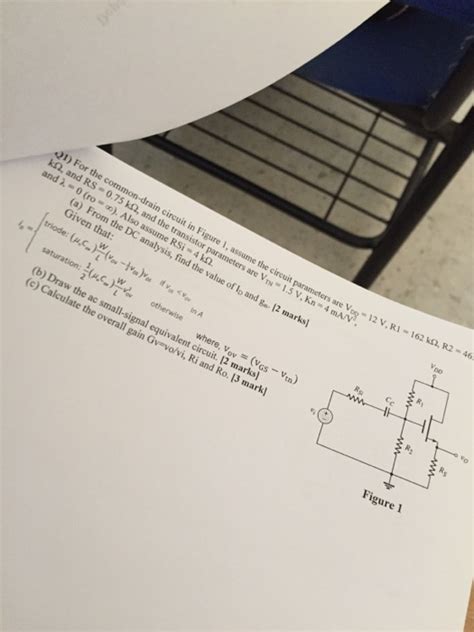 Q1) For the common-drain circuit in Figure 1, assume the circuit parameters are VDD = 12 V, R1 = 162 kΩ, R2 = 46.
kΩ, and RS = 0.75 kΩ, and the transistor parameters are VTN = 1.5 V, Kn = 4 mA/V²,
and λ = 0 (ro = ∞). Also assume RSi = 4 kΩ.
(a) From the DC analysis, find the value of ID and gm. [2 marks]
Given that:
triode: (μnCn) W/L (vOV − ½vDS) vDS if vDS < vOV
iD = in A
saturation: ½ (μnCn) W/L v²OV otherwise
where, vOV = (vGS − vtn)
(b) Draw the ac small-signal equivalent circuit. [2 marks]
(c) Calculate the overall gain Gv=vo/vi, Ri and Ro. [3 mark]
VDD
RSi
CC
R1
vi
R2
vO
RS
Figure 1